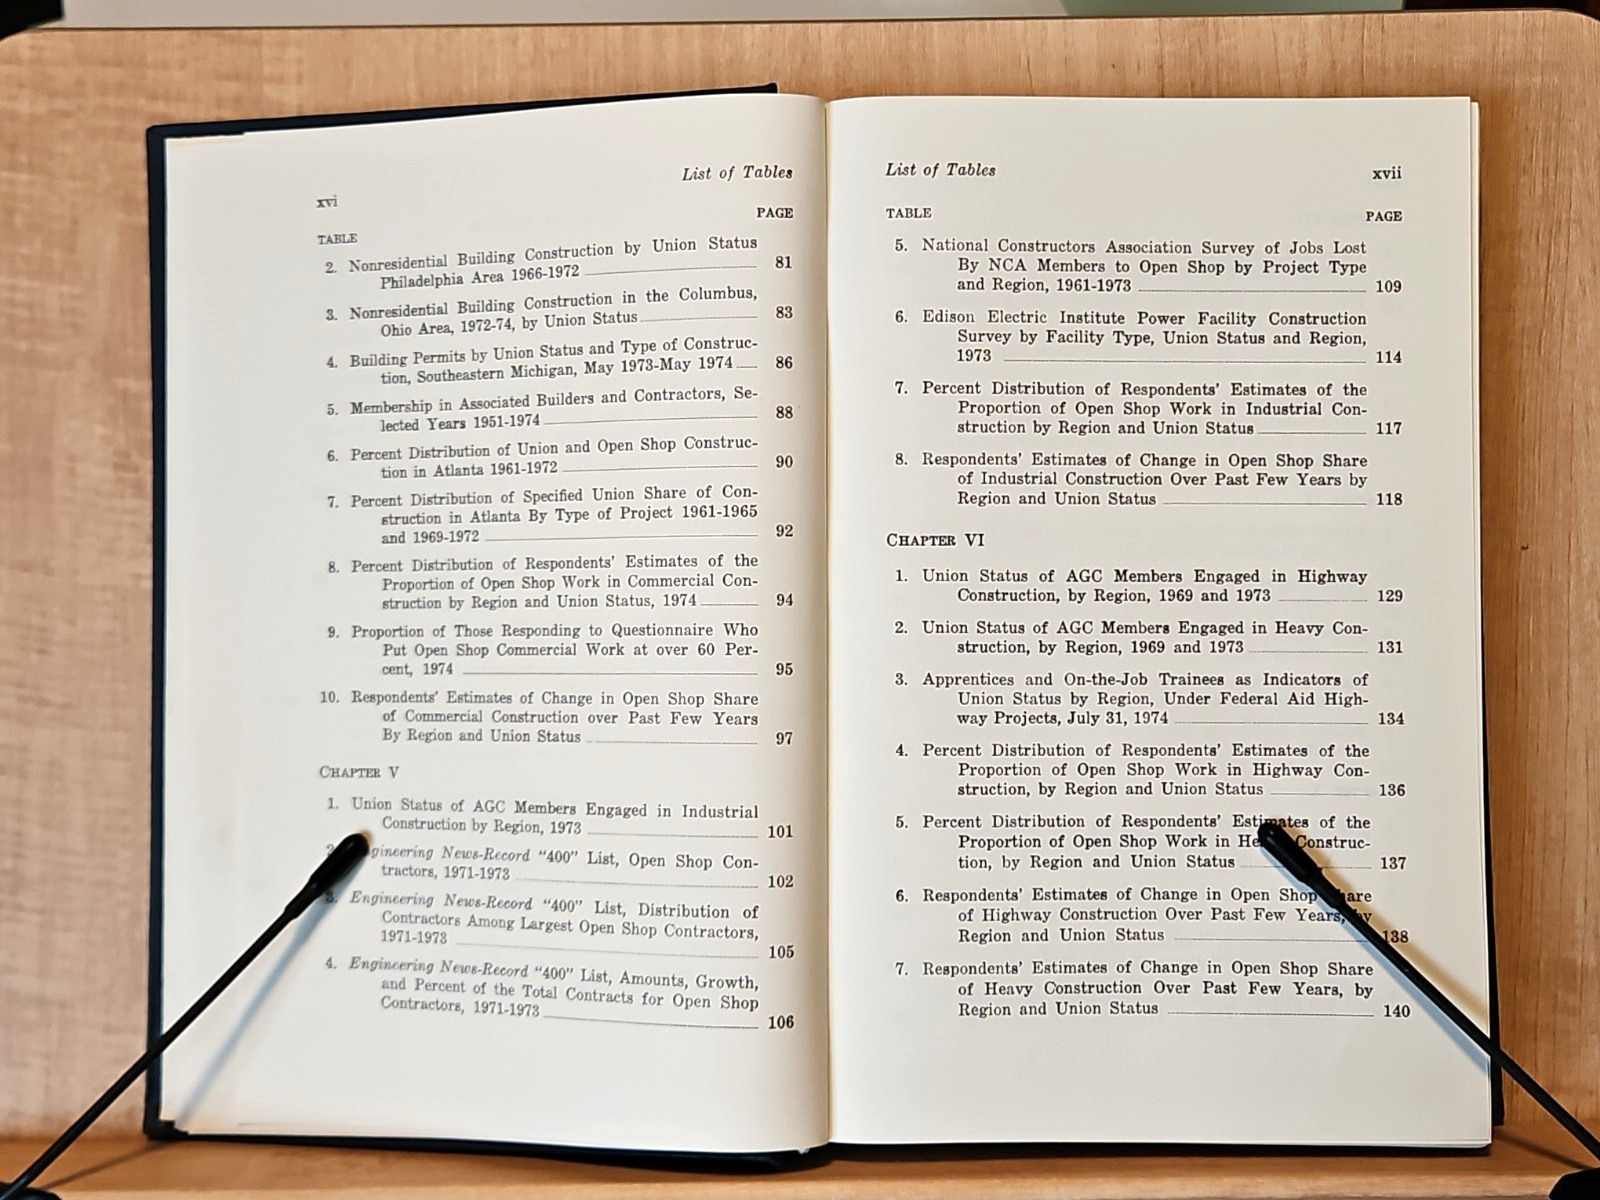 List of Tables
xvi
PAGE
TABLE
2. Nonresidential Building Construction by Union Status
Philadelphia Area 1966-1972 81
3. Nonresidential Building Construction in the Columbus,
Ohio Area, 1972-74, by Union Status 83
4. Building Permits by Union Status and Type of Construc-
tion, Southeastern Michigan, May 1973-May 1974 86
5. Membership in Associated Builders and Contractors, Se-
lected Years 1951-1974 88
6. Percent Distribution of Union and Open Shop Construc-
tion in Atlanta 1961-1972 90
7. Percent Distribution of Specified Union Share of Con-
struction in Atlanta By Type of Project 1961-1965
and 1969-1972 92
8. Percent Distribution of Respondents' Estimates of the
Proportion of Open Shop Work in Commercial Con-
struction by Region and Union Status, 1974 94
9. Proportion of Those Responding to Questionnaire Who
Put Open Shop Commercial Work at over 60 Per-
cent, 1974 95
10. Respondents' Estimates of Change in Open Shop Share
of Commercial Construction over Past Few Years
By Region and Union Status 97
CHAPTER V
1. Union Status of AGC Members Engaged in Industrial
Construction by Region, 1973 101
2. Engineering News-Record "400" List, Open Shop Con-
tractors, 1971-1973 102
3. Engineering News-Record "400" List, Distribution of
Contractors Among Largest Open Shop Contractors,
1971-1973 105
4. Engineering News-Record "400" List, Amounts, Growth,
and Percent of the Total Contracts for Open Shop
Contractors, 1971-1973 106
List of Tables xvii
TABLE PAGE
5. National Constructors Association Survey of Jobs Lost
By NCA Members to Open Shop by Project Type
and Region, 1961-1973 109
6. Edison Electric Institute Power Facility Construction
Survey by Facility Type, Union Status and Region,
1973 114
7. Percent Distribution of Respondents' Estimates of the
Proportion of Open Shop Work in Industrial Con-
struction by Region and Union Status 117
8. Respondents' Estimates of Change in Open Shop Share
of Industrial Construction Over Past Few Years by
Region and Union Status 118
CHAPTER VI
1. Union Status of AGC Members Engaged in Highway
Construction, by Region, 1969 and 1973 129
2. Union Status of AGC Members Engaged in Heavy Con-
struction, by Region, 1969 and 1973 131
3. Apprentices and On-the-Job Trainees as Indicators of
Union Status by Region, Under Federal Aid High-
way Projects, July 31, 1974 134
4. Percent Distribution of Respondents' Estimates of the
Proportion of Open Shop Work in Highway Con-
struction, by Region and Union Status 136
5. Percent Distribution of Respondents' Estimates of the
Proportion of Open Shop Work in Heavy Construc-
tion, by Region and Union Status 137
6. Respondents' Estimates of Change in Open Shop Share
of Highway Construction Over Past Few Years, by
Region and Union Status 138
7. Respondents' Estimates of Change in Open Shop Share
of Heavy Construction Over Past Few Years, by
Region and Union Status 140